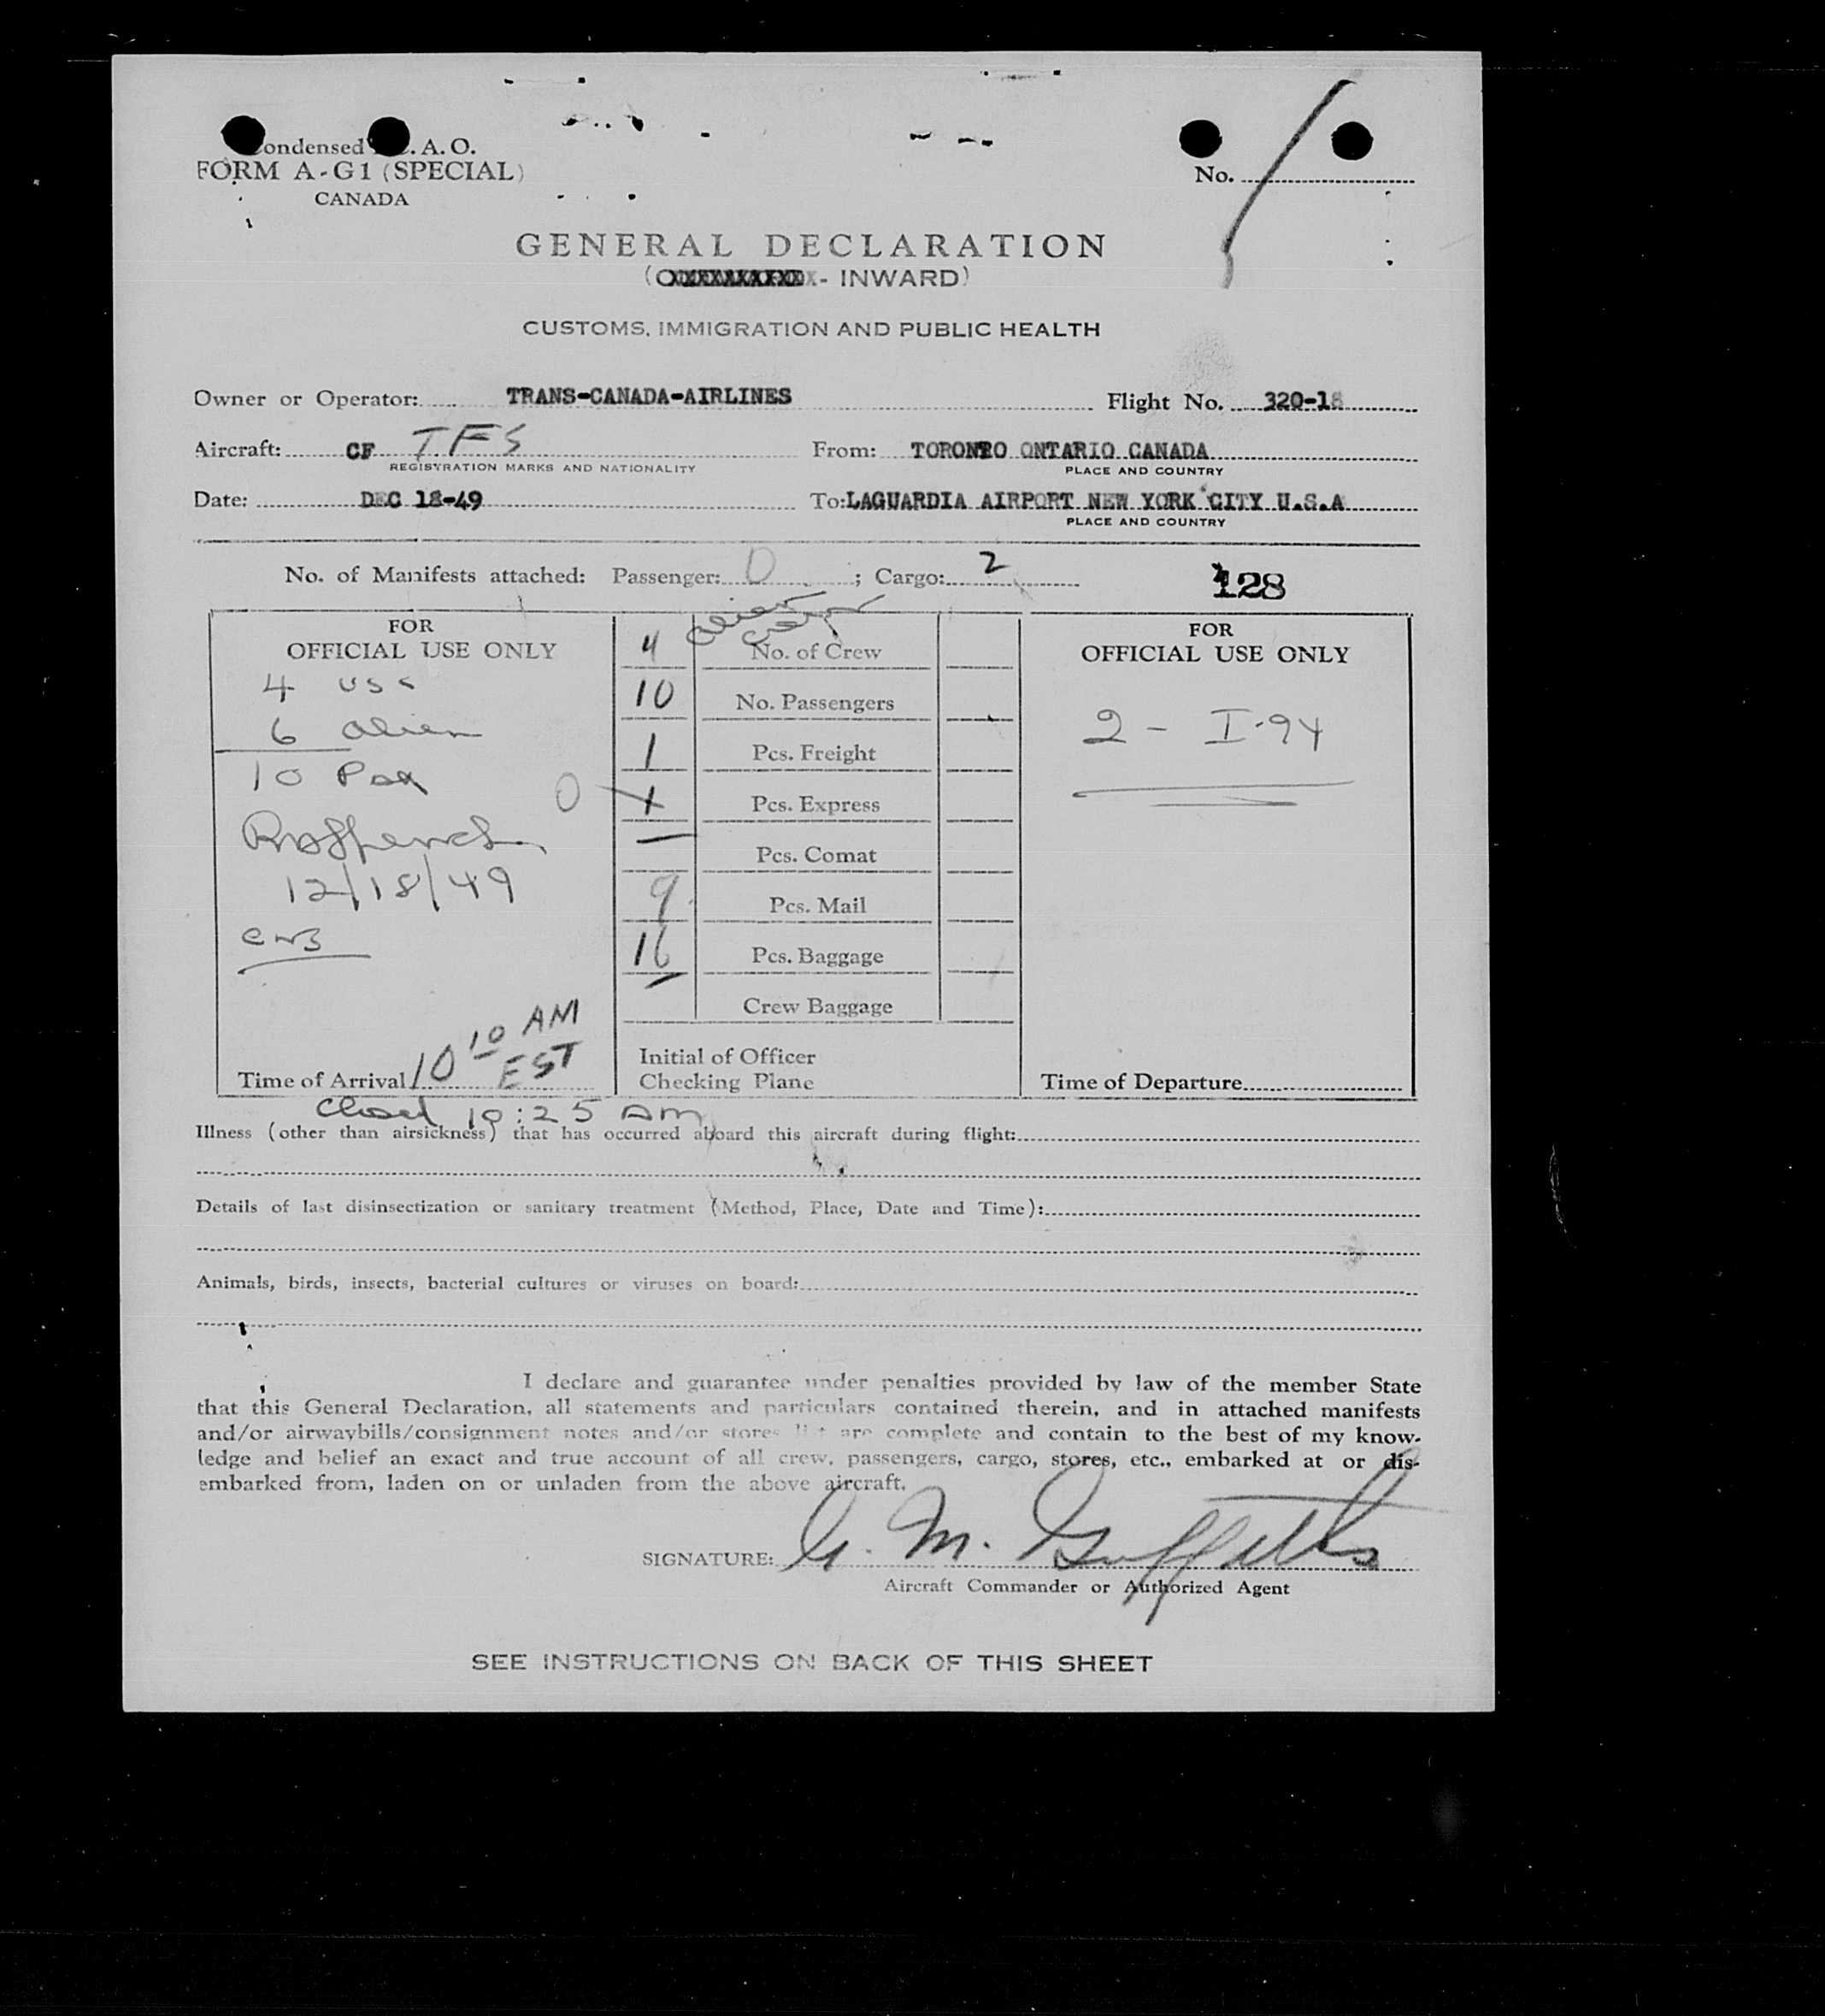 Condensed I.C.A.O.
FORM A-G1 (SPECIAL)
CANADA
No.
GENERAL DECLARATION
- INWARD)
CUSTOMS, IMMIGRATION AND PUBLIC HEALTH
Owner or Operator: TRANS-CANADA-AIRLINES Flight No. 320-18
Aircraft: CF TFS From: TORONTO ONTARIO CANADA
REGISTRATION MARKS AND NATIONALITY PLACE AND COUNTRY
Date: DEC 18-49 To: LAGUARDIA AIRPORT NEW YORK CITY U.S.A
PLACE AND COUNTRY
No. of Manifests attached: Passenger: 0 ; Cargo: 2
128
FOR
OFFICIAL USE ONLY
4 USC
6 alien
10 Pax
12/18/49
Time of Arrival 10 10 AM
EST
Closed 10:25 AM
alien
4 No. of Crew
10 No. Passengers
1 Pcs. Freight
0 1 Pcs. Express
— Pcs. Comat
9 Pcs. Mail
16 Pcs. Baggage
Crew Baggage
Initial of Officer
Checking Plane
FOR
OFFICIAL USE ONLY
2 - I-94
Time of Departure
Illness (other than airsickness) that has occurred aboard this aircraft during flight:
Details of last disinsectization or sanitary treatment (Method, Place, Date and Time):
Animals, birds, insects, bacterial cultures or viruses on board:
I declare and guarantee under penalties provided by law of the member State
that this General Declaration, all statements and particulars contained therein, and in attached manifests
and/or airwaybills/consignment notes and/or stores list are complete and contain to the best of my know-
ledge and belief an exact and true account of all crew, passengers, cargo, stores, etc., embarked at or dis-
embarked from, laden on or unladen from the above aircraft.
SIGNATURE: G. M. Griffiths
Aircraft Commander or Authorized Agent
SEE INSTRUCTIONS ON BACK OF THIS SHEET